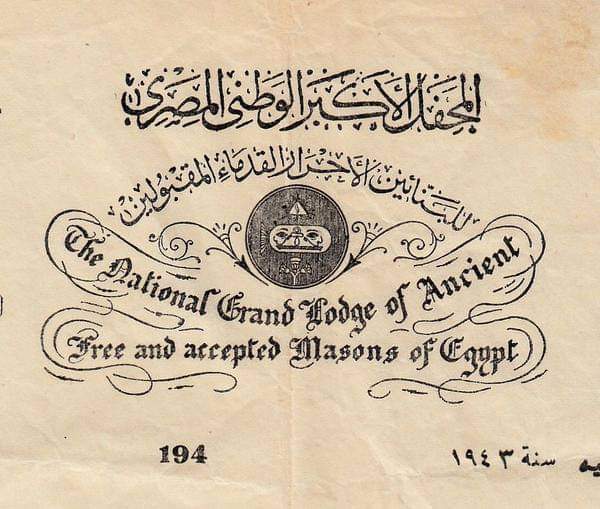 المحفل الأكبر الوطنى المصرى
للبنائين الأحرار القدماء المقبولين
The National Grand Lodge of Ancient
Free and accepted Masons of Egypt
194
سنة ١٩٤٣